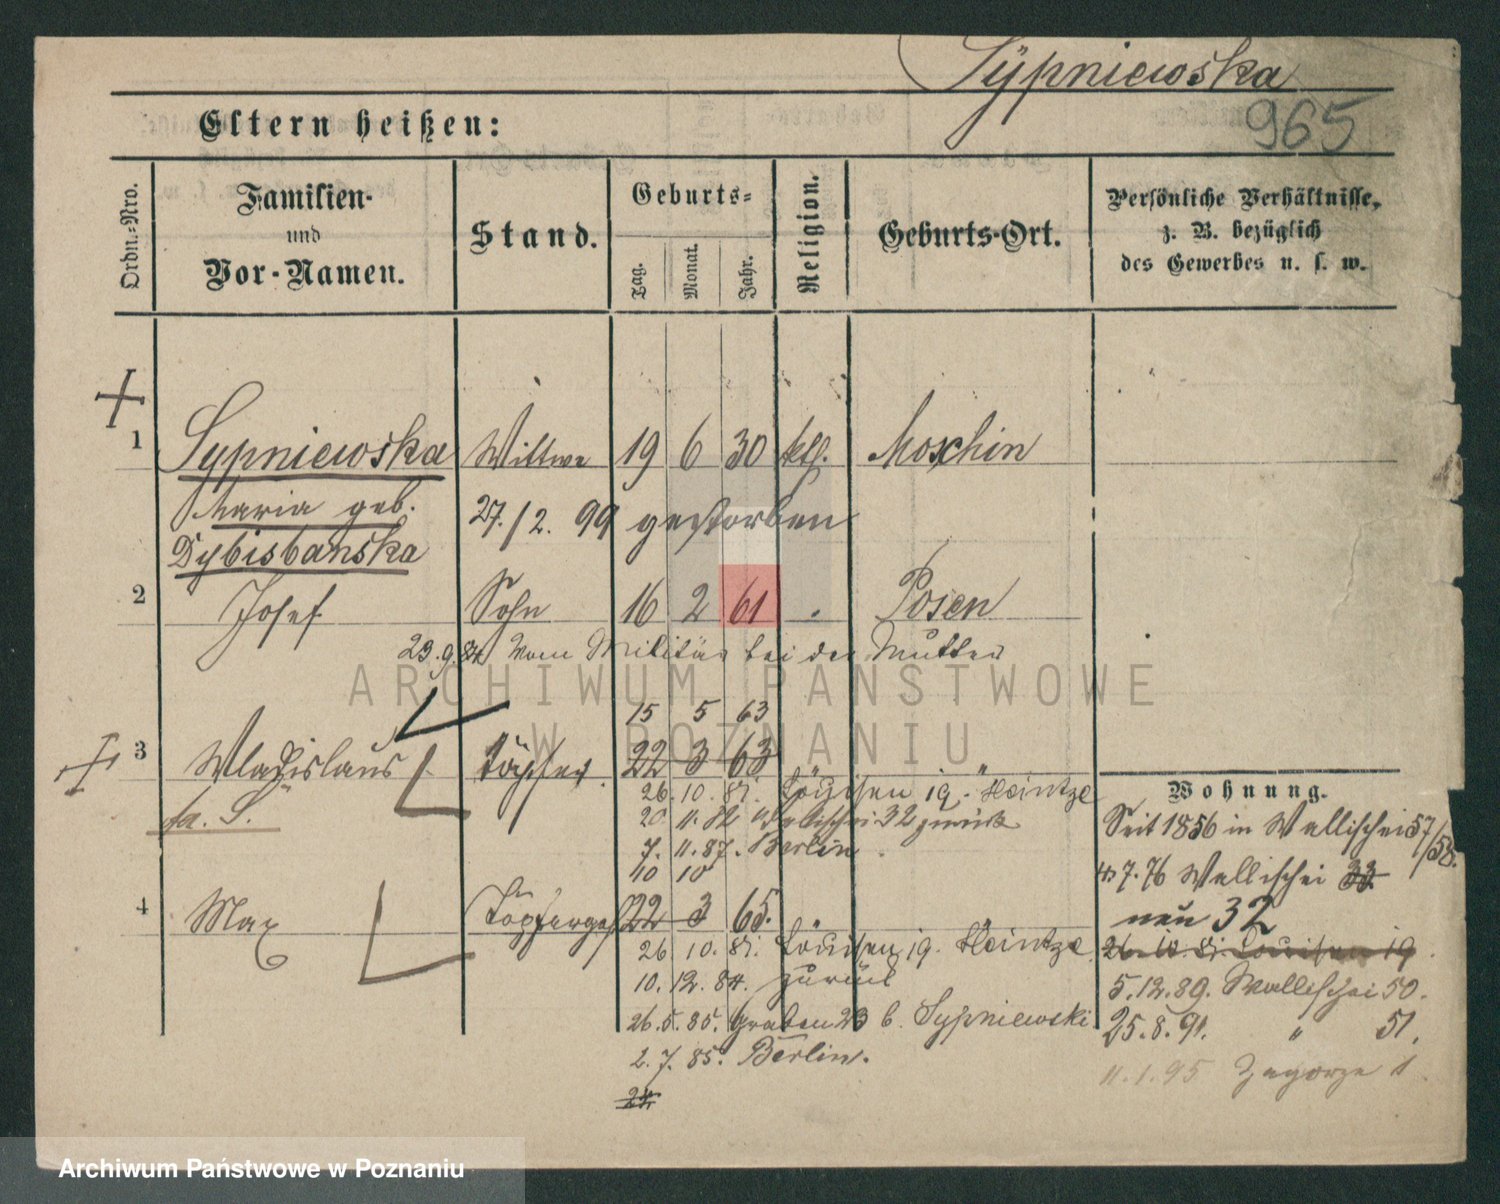 Sÿpniewska
965
Eltern heißen:
Ordn.-Nro.
Familien-
und
Vor-Namen.
Stand.
Geburts-
Tag.
Monat.
Jahr.
Religion.
Geburts-Ort.
Persönliche Verhältnisse,
z. B. bezüglich
des Gewerbes u. s. w.
1 Sypniewska Wittwe 19 6 30 ktl. Moschin
Maria geb. 27./2. 99 gestorben
Dybisbanska
2 Josef Sohn 16 2 61 Posen
23.9.84 vom Militär bei der Mutter
ARCHIWUM PAŃSTWOWE
W POZNANIU
15 5 63
3 Wladislaus Töpfer 22 3 63
26.10.81. Louisen 19. Heintze
fa. S. 20 11.82 Wallischei 32 zurück
7. 11.87. Berlin
10 10
4 Max Töpferges. 22 3 65.
26.10.81. Louisen 19. Heintze
10.12.84. zurück
26.5.85. Graben 23 b. Sypniewski
2.7.85. Berlin.
24.
Wohnung.
Seit 1856 in Wallischei 57/58.
7.76 Wallischei 33
neu 32
26.10.81. Louisen 19
5.12.89. Wallischei 50.
25.8.91. " 51.
11.1.95 Zagorze 1
Archiwum Państwowe w Poznaniu